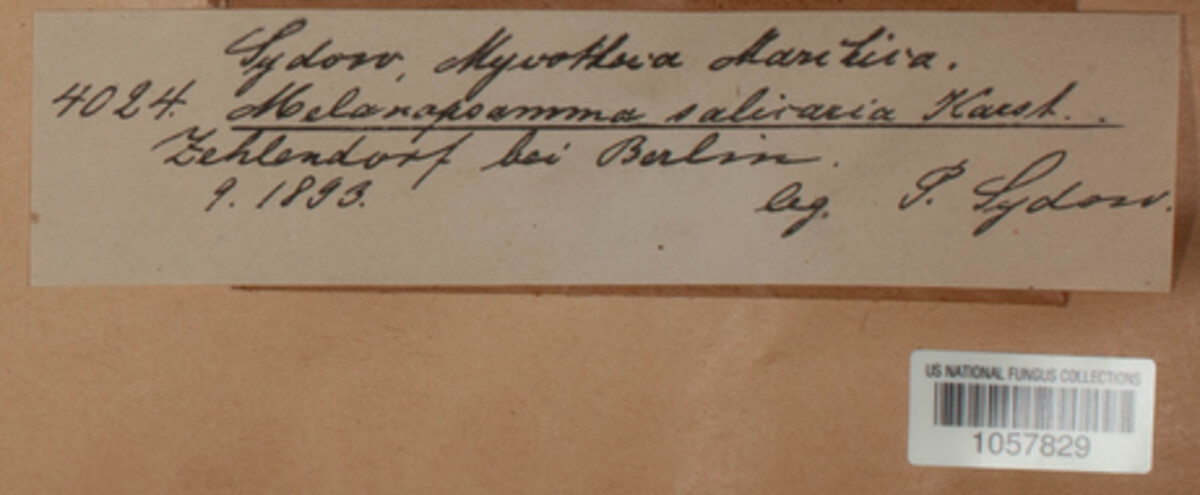 Sydow, Mycotheca Marchica.
4024. Melanopsamma salicaria Karst.
Zehlendorf bei Berlin.
9. 1893. leg. P. Sydow.
US NATIONAL FUNGUS COLLECTIONS
1057829